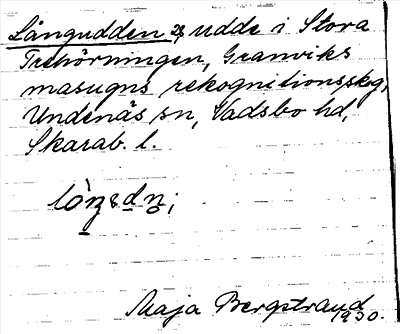 Långudden, udde i Stora
Trehörningen, Granviks
masugns rekognitionsskog,
Undenäs sn, Vadsbo hd,
Skarab. l.
Maja Bergstrand
1930.